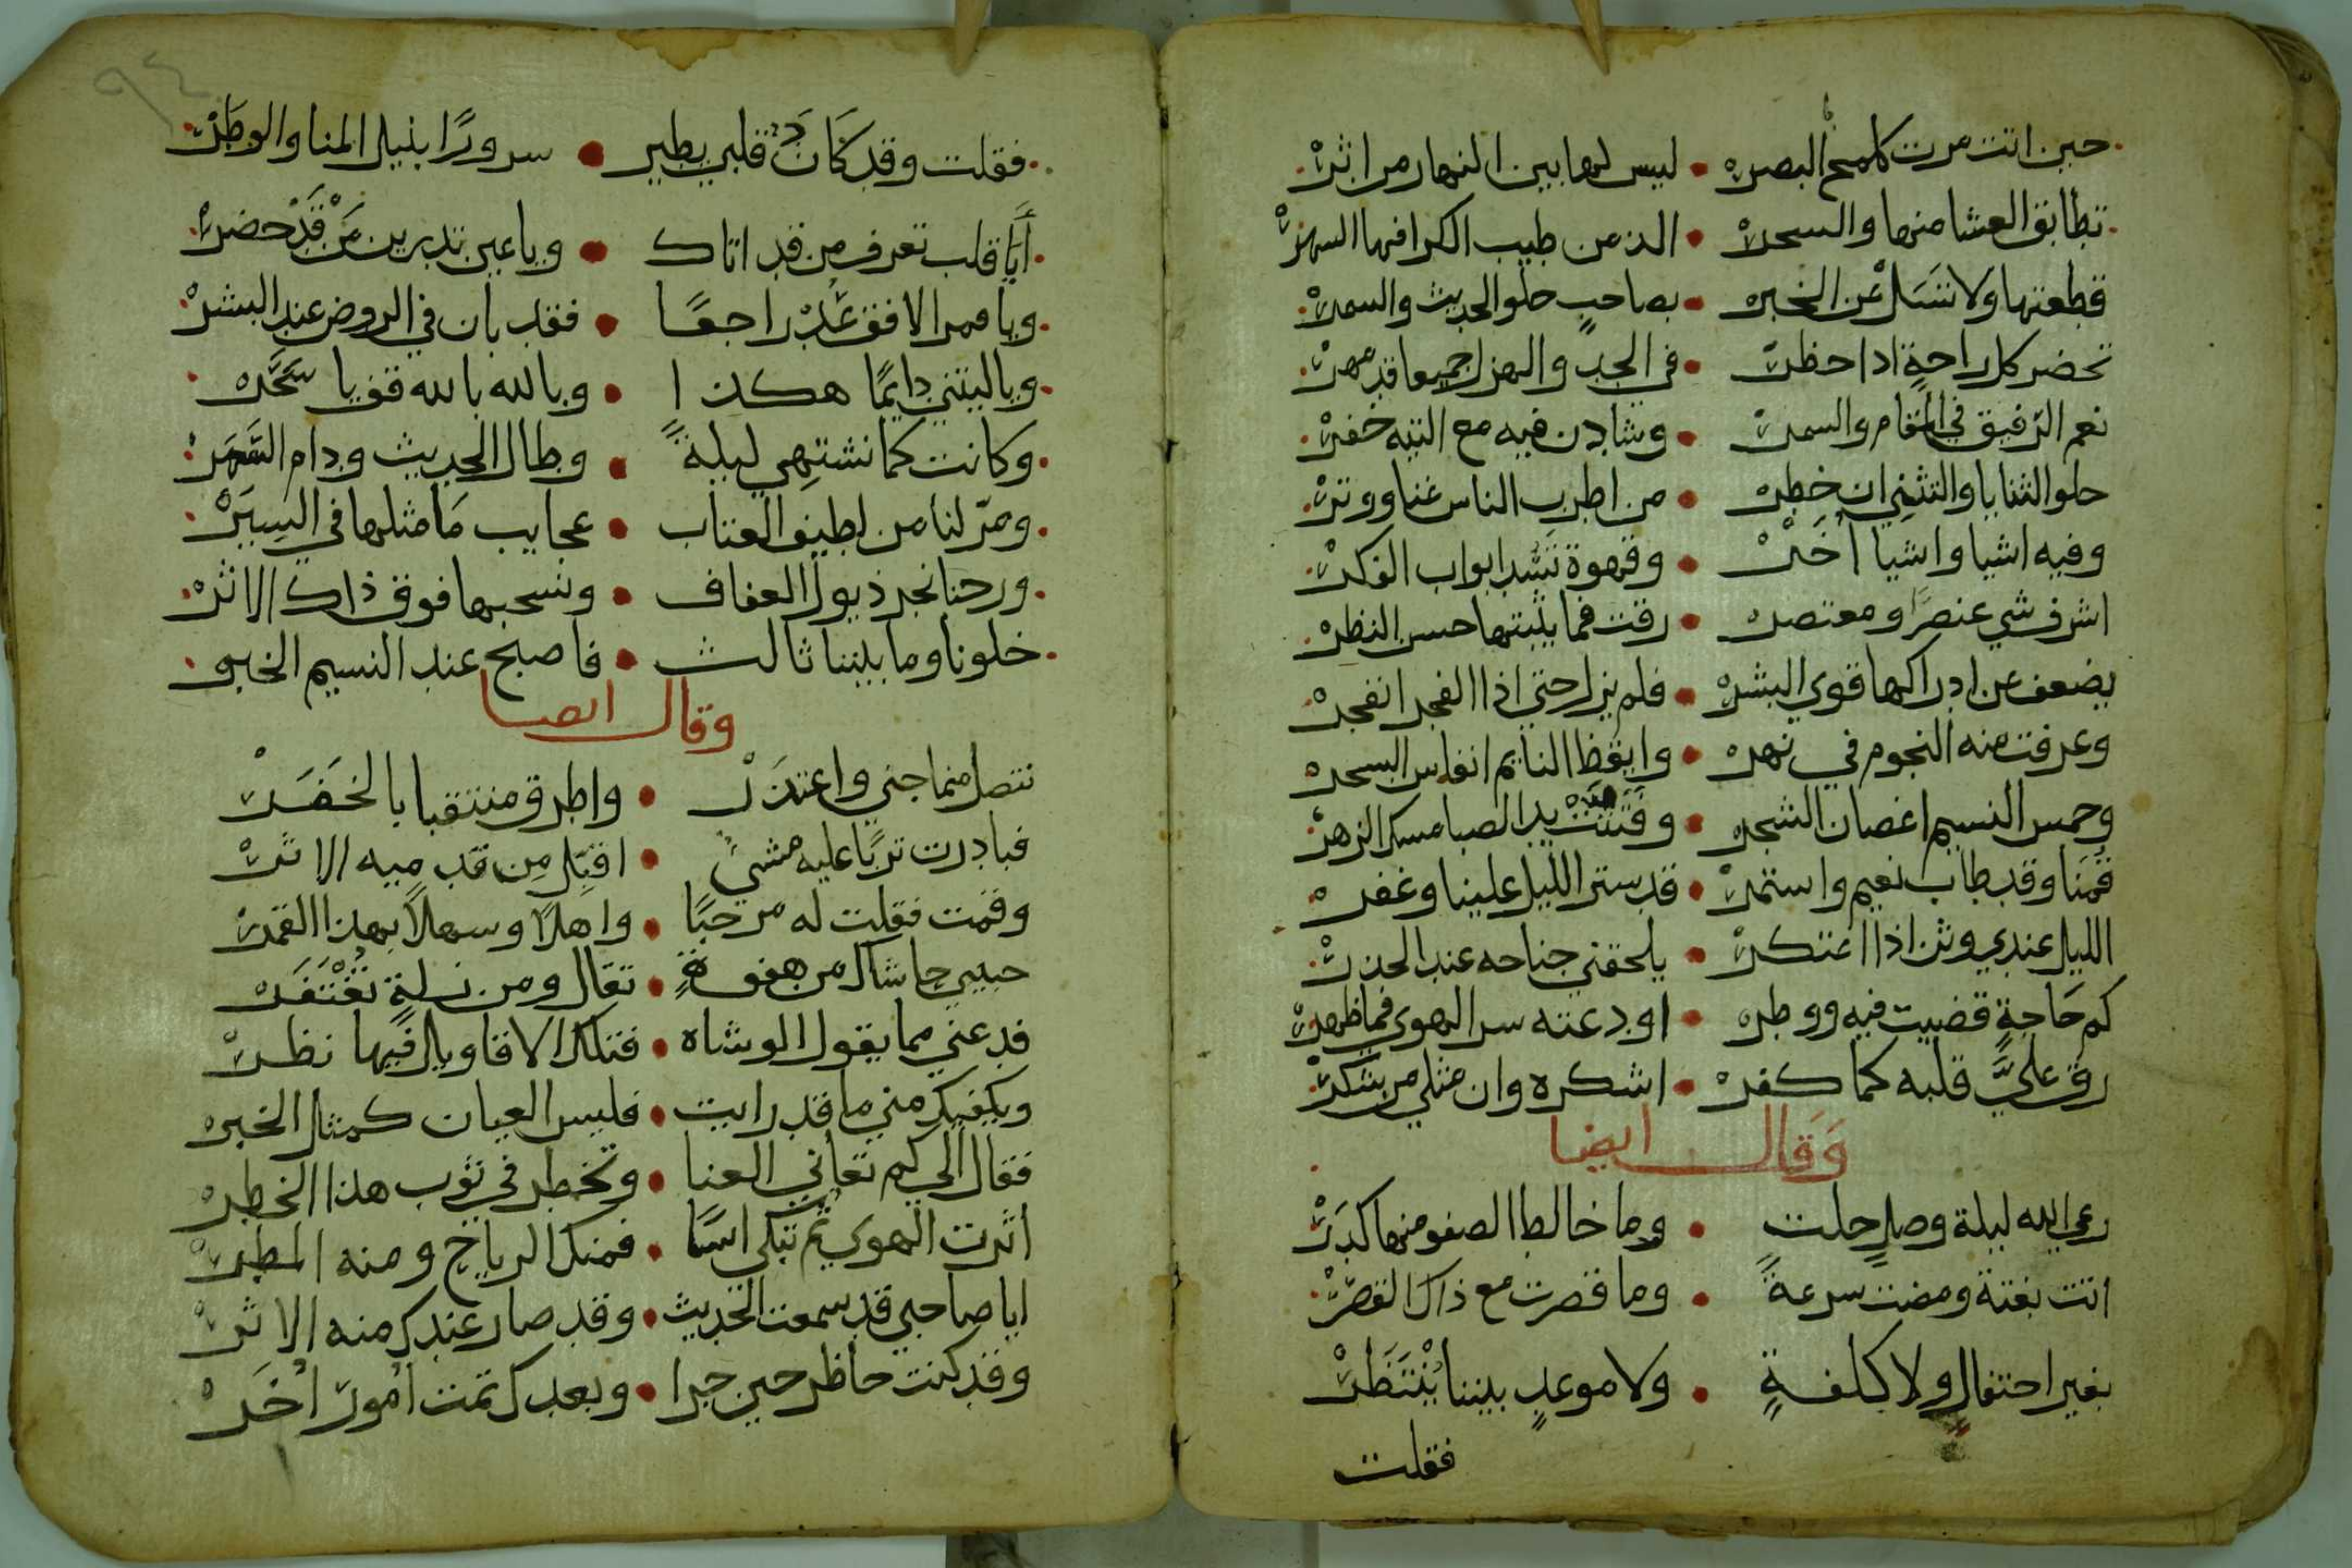 حين اتت مرت كلمح البصر • ليس لها بين النهار من اثر
تطابق العشا منها والسحر • الذ من طيب الكرا فيها السهر
قطعتها ولا تسل عن الخبر • بصاحب حلو الحديث والسمر
تحضر كل راحة اذا حظر • في الجد والهزل جميعا قد مهر
نعم الرفيق في المقام والسمر • وشادن فيه مع التيه خفر
حلو الثنايا والتثني ان خطر • من اطرب الناس غنا ووتر
وفيه اشيا واشيا أخر • وقهوة تسد ابواب الفكر
اشرف شي عنصرًا ومعتصر • رقت فما يثبتها حسن النظر
يضعف عن ادراكها قوي البشر • فلم يزل حتي اذا الفجر انفجر
وعرفت منه النجوم في نهر • وايقظ النايم انفاس السحر
وحمس النسيم اغصان الشجر • وفتتت يد الصبا مسك الزهر
قمنا وقد طاب نعيم واستمر • قد ستر الليل علينا وغفر
الليل عندي وثن اذا اعتكر • يلحقني جناحه عند الحذر
كم حَاجةٍ قضيت فيه ووطر • اودعته سر الهوي فما ظهر
رق عليَّ قلبه كما كفر • اشكره وان مثلي من يشكر
وَقَال ايضا
رعي الله ليلة وصلٍ حلت • وما خالط الصفو منها كدر
اتت بغتة ومضت سرعةً • وما قصرت مع ذاك القصر
بغير احتفالٍ ولا كلفةٍ • ولا موعدٍ بيننا يُنْتَظَر
فقلت
٩٤
فقلت وقد كَانَ قلبي يطير • سرورًا بنيل المنا والوطر
أيَا قلب تعرف من قد اتاك • ويا عين تدرين مَنْ قَدْ حضر
ويا قمر الافق عُدْ راجعًا • فقد بان في الروض عند البشر
ويا ليتني دايمًا هكذا • وبالله بالله قف يا سَحَر
وكانت كما نشتهي ليلةً • وطال الحديث ودام السَّمَر
ومرّ لنا من لطيف العتاب • عجايب مَا مثلها في السِيَرْ
ورحنا نجر ذيول العفاف • ونسحبها فوق ذاك الاثر
خلونا وما بيننا ثالث • فاصبح عند النسيم الخبر
وقال ايضا
تنصل مما جني واعتذر • واطرق منتقبا بالخَفَر
فبادرت تربًا عليه مشي • اقبّل مِن قدميه الاثر
وقمت فقلت له مرحبًا • واهلًا وسهلًا بهذا القمر
حبيبي حاشاك من هفوةٍ • تقال ومن زلةٍ تُغْتَفَر
فدعني مما يقول الوشاه • فتلك الاقاويل فيها نظر
ويكفيك مني ما قد رايت • فليس العيان كمثل الخبر
فقال الي كم تعاني العنا • وتخطر في ثوب هذا الخطر
اثرت الهوي ثم تبكي اسًا • فمنك الرياح ومنه المطر
ايا صاحبي قد سمعت الحديث • وقد صار عندك منه الاثر
وقد كنت حاظر حين جرا • وبعدك تمت امور اُخَر